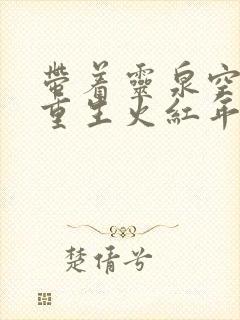 帶着靈泉空
重生火紅年
楚倩兮